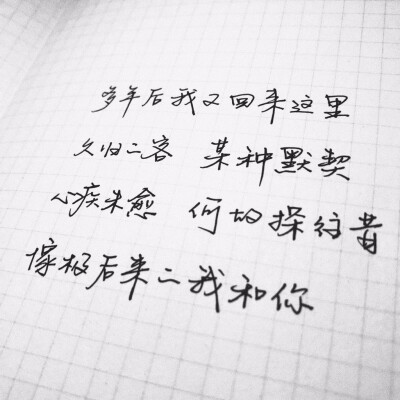 多年后我又回来这里
久归二客 某种默契
心疾未愈 何切探往昔
像极后来二我和你